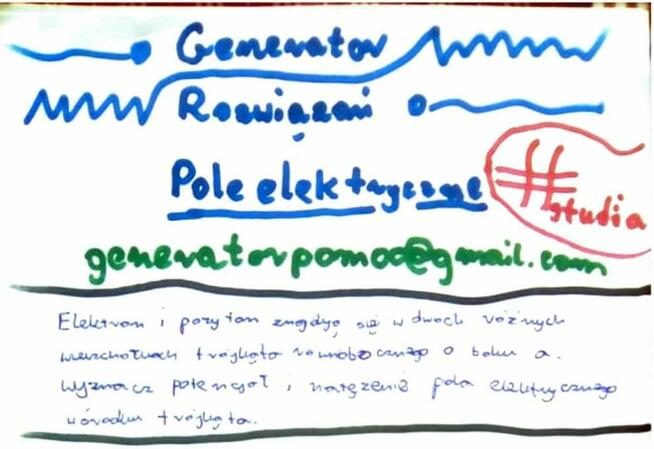 Generator
Rozwiązań
Pole elektryczne
#studia
generatorpomoc@gmail.com
Elektron i pozyton znajdują się w dwóch różnych
wierzchołkach trójkąta równobocznego o boku a.
Wyznacz potencjał i natężenie pola elektrycznego
w środku trójkąta.